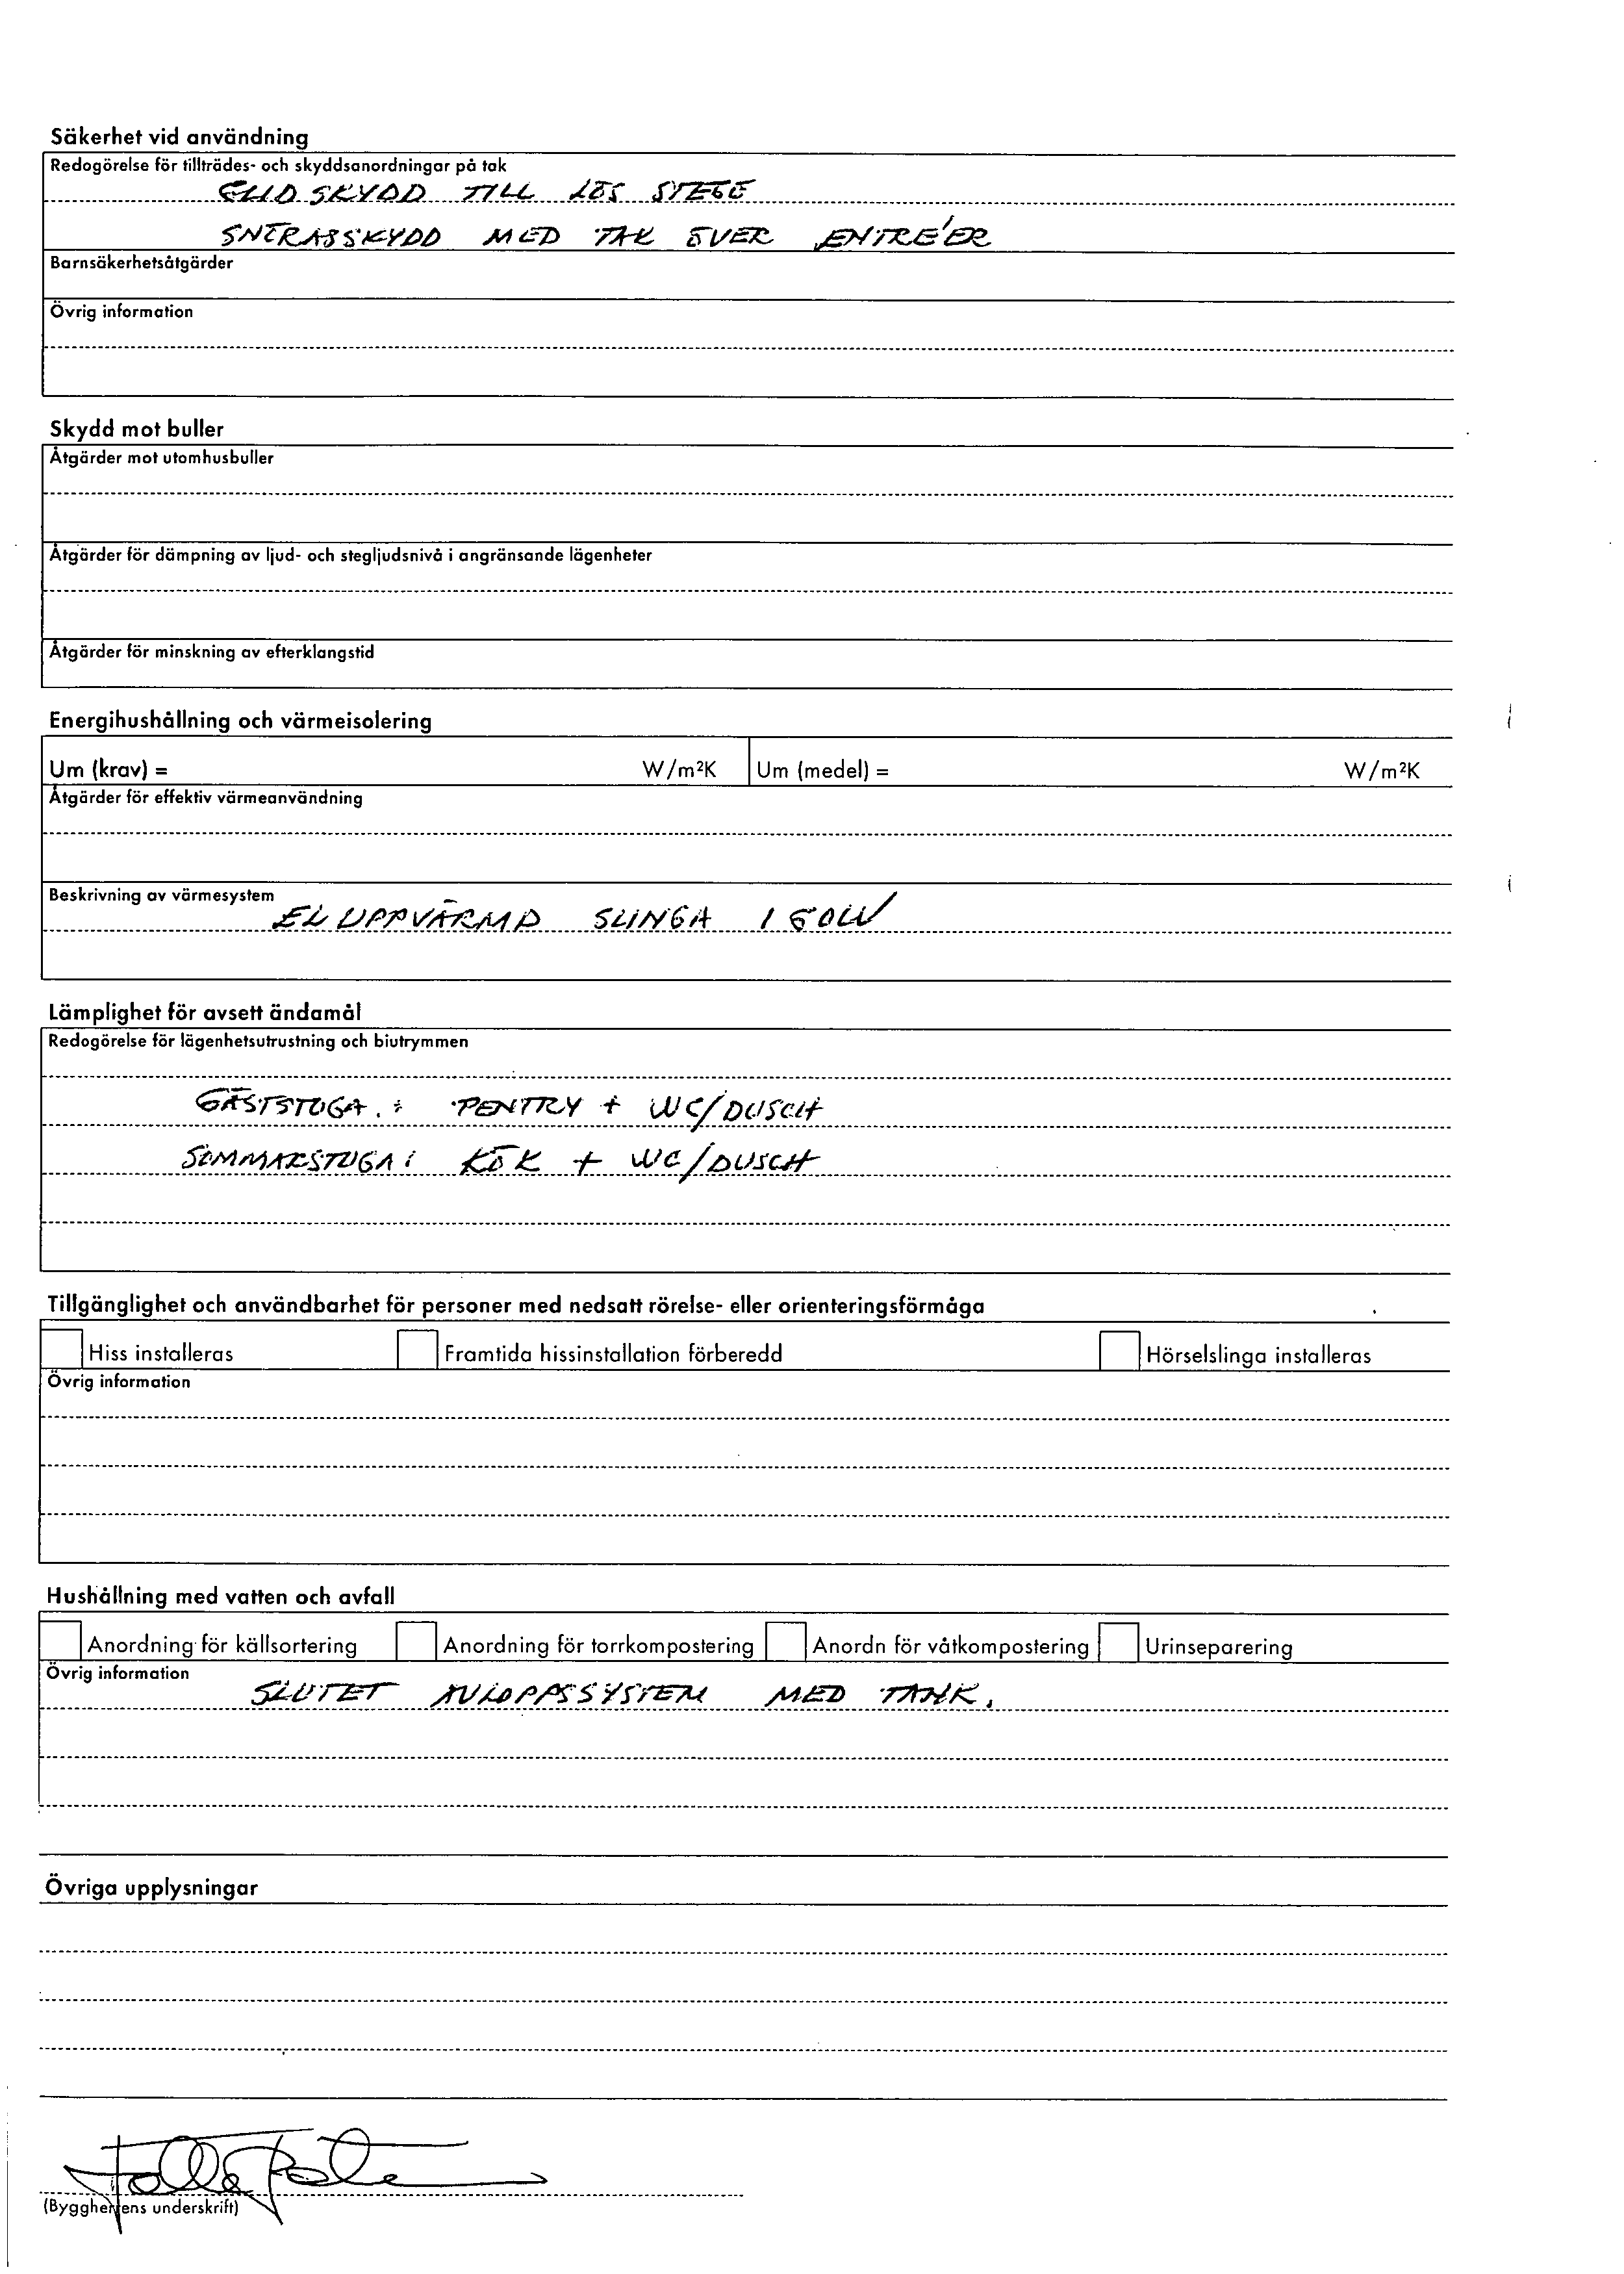 Säkerhet vid användning
Redogörelse för tillträdes- och skyddsanordningar på tak
GLIDSKYDD TILL LÖS STEGE
SNÖRASSKYDD MED TAK ÖVER ENTRÉER
Barnsäkerhetsåtgärder
Övrig information
Skydd mot buller
Åtgärder mot utomhusbuller
Åtgärder för dämpning av ljud- och stegljudsnivå i angränsande lägenheter
Åtgärder för minskning av efterklangstid
Energihushållning och värmeisolering
Um (krav) = W/m²K Um (medel) = W/m²K
Åtgärder för effektiv värmeanvändning
Beskrivning av värmesystem
ELUPPVÄRMD SLINGA I GOLV
Lämplighet för avsett ändamål
Redogörelse för lägenhetsutrustning och biutrymmen
GÄSTSTUGA : PENTRY + WC/DUSCH
SOMMARSTUGA : KÖK + WC/DUSCH
Tillgänglighet och användbarhet för personer med nedsatt rörelse- eller orienteringsförmåga
Hiss installeras Framtida hissinstallation förberedd Hörselslinga installeras
Övrig information
Hushållning med vatten och avfall
Anordning för källsortering Anordning för torrkompostering Anordn för våtkompostering Urinseparering
Övrig information
SLUTET AVLOPPSSYSTEM MED TANK.
Övriga upplysningar
(Byggherrens underskrift)